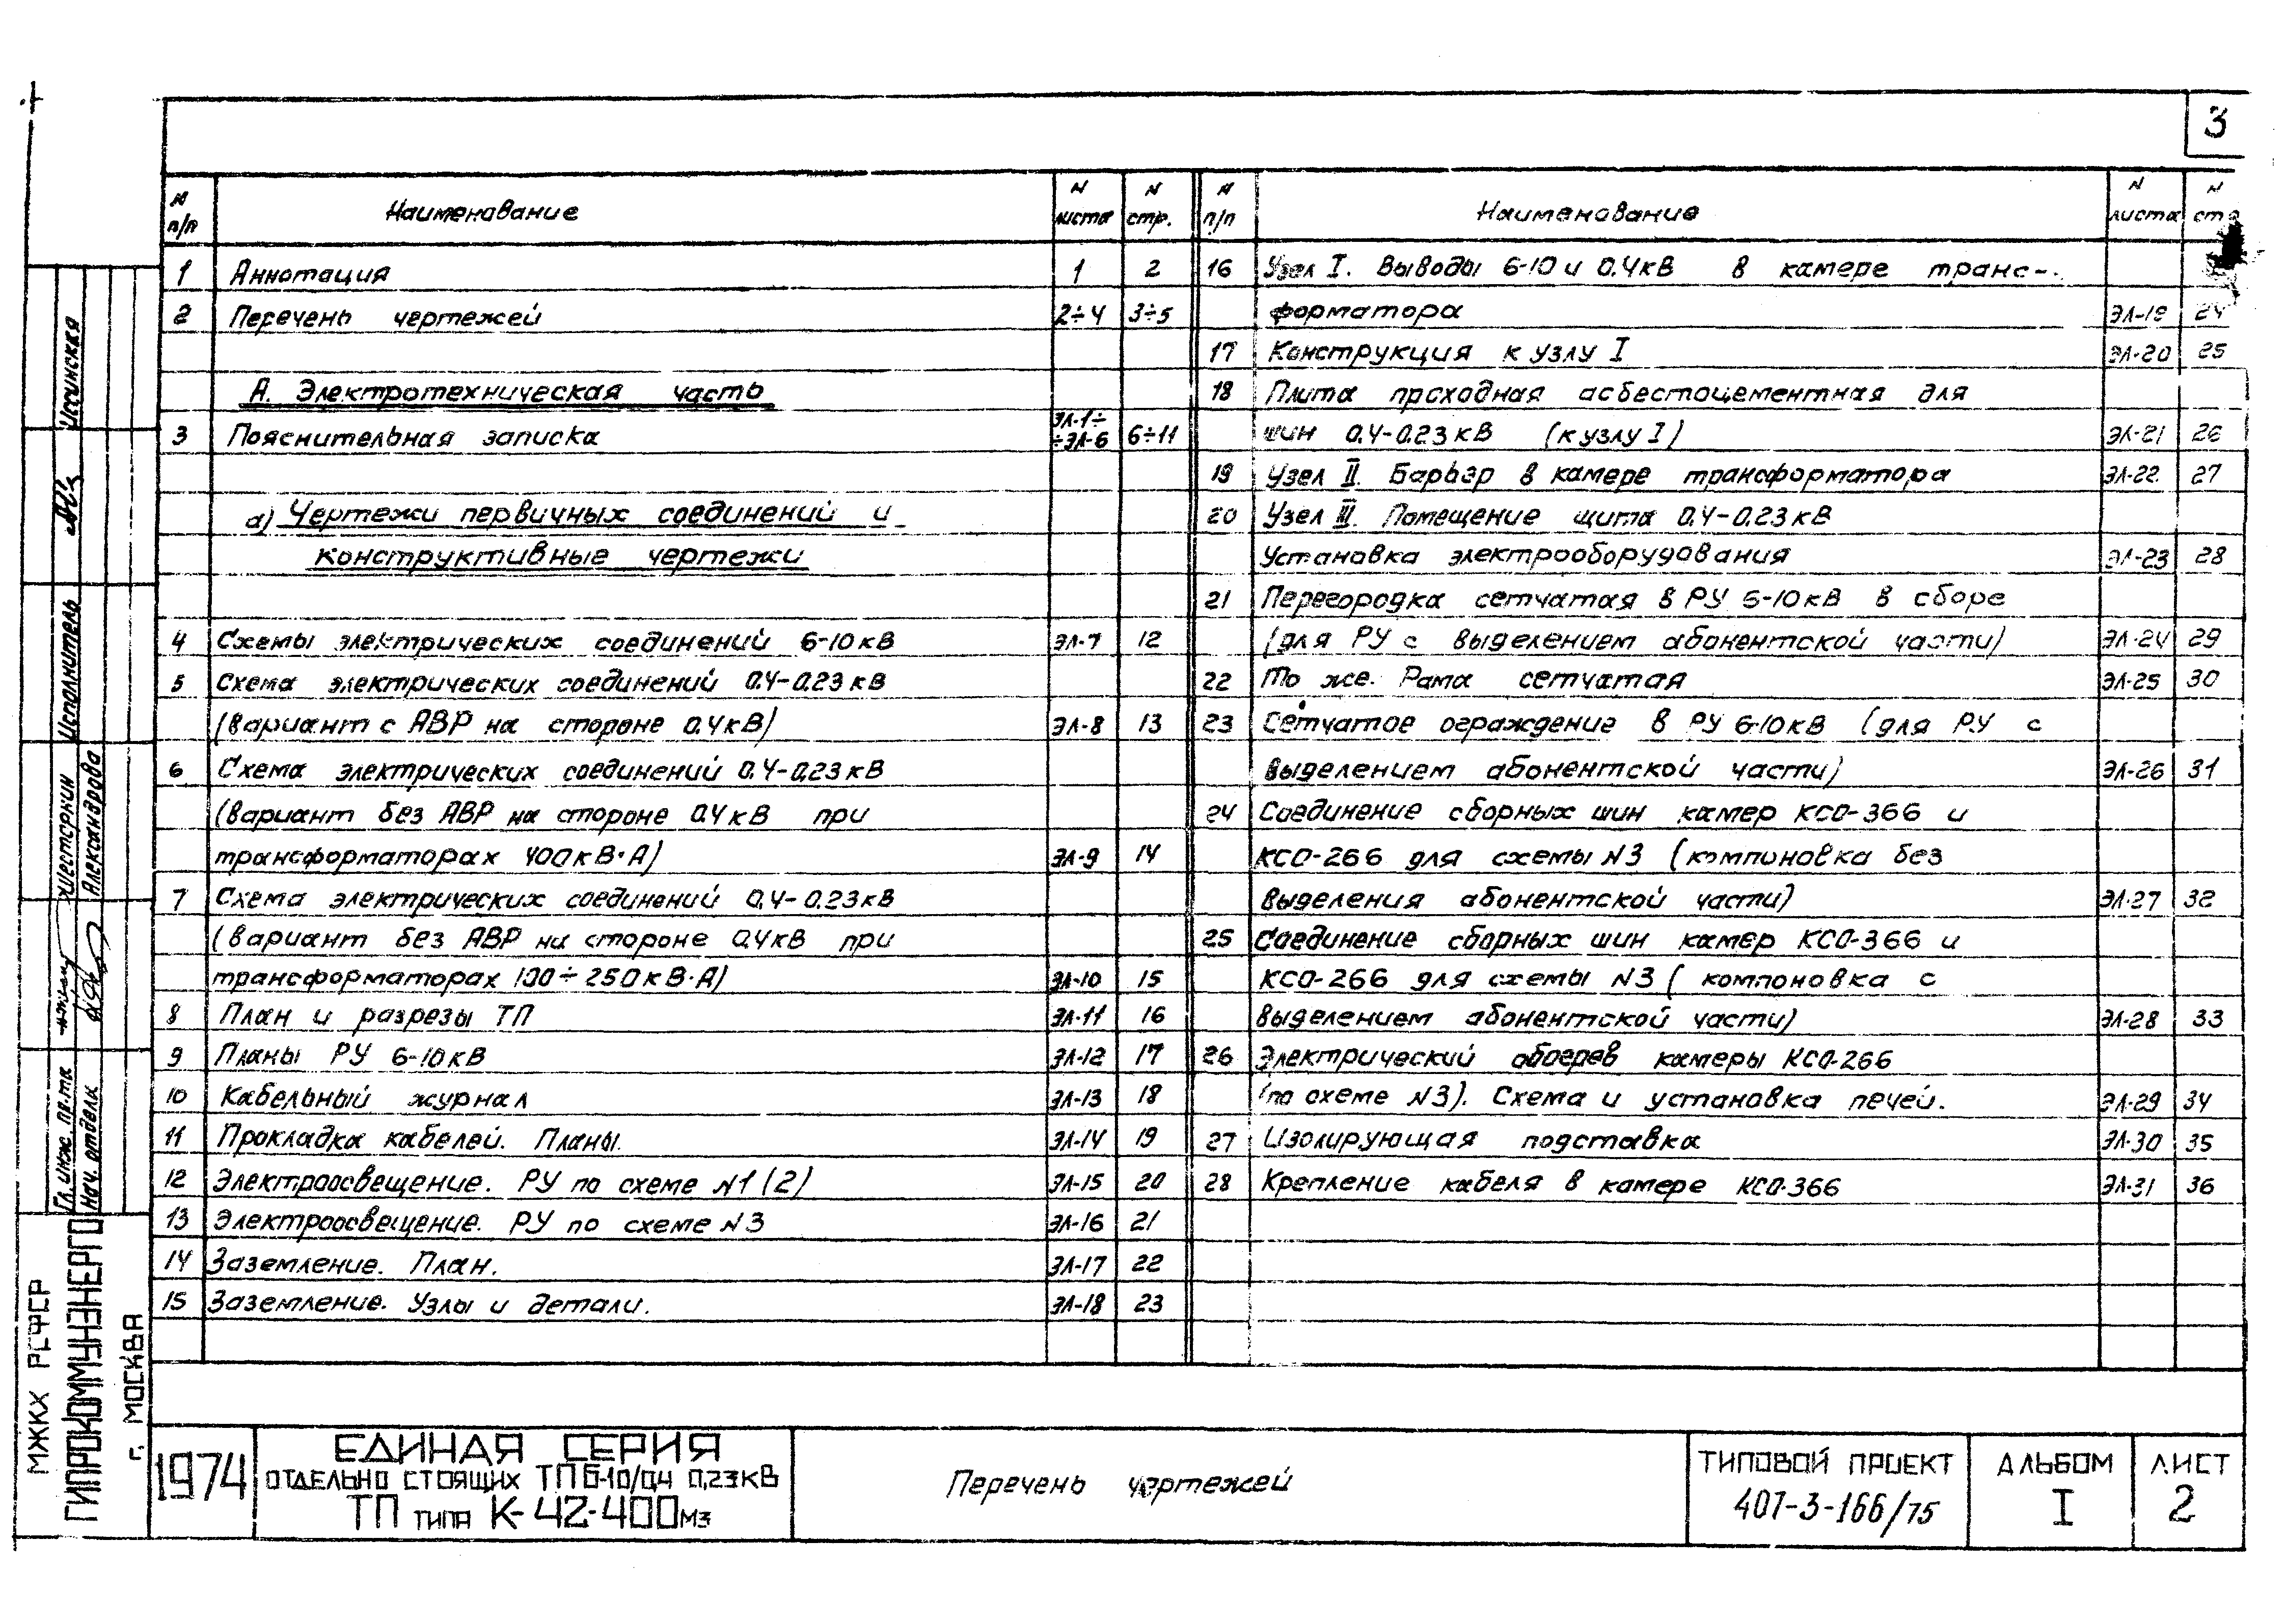 3
N п/п Наименование N листа N стр.
1 Аннотация 1 2
2 Перечень чертежей 2÷4 3÷5
А. Электротехническая часть
3 Пояснительная записка ЭЛ-1÷ ÷ЭЛ-6 6÷11
а) Чертежи первичных соединений и
конструктивные чертежи
4 Схемы электрических соединений 6-10кВ ЭЛ-7 12
5 Схема электрических соединений 0.4-0.23кВ
(вариант с АВР на стороне 0.4кВ) ЭЛ-8 13
6 Схема электрических соединений 0.4-0.23кВ
(вариант без АВР на стороне 0.4кВ при
трансформаторах 400кВ·А) ЭЛ-9 14
7 Схема электрических соединений 0.4-0.23кВ
(вариант без АВР на стороне 0.4кВ при
трансформаторах 100÷250кВ·А) ЭЛ-10 15
8 План и разрезы ТП ЭЛ-11 16
9 Планы РУ 6-10кВ ЭЛ-12 17
10 Кабельный журнал ЭЛ-13 18
11 Прокладка кабелей. Планы. ЭЛ-14 19
12 Электроосвещение. РУ по схеме N1(2) ЭЛ-15 20
13 Электроосвещение. РУ по схеме N3 ЭЛ-16 21
14 Заземление. План. ЭЛ-17 22
15 Заземление. Узлы и детали. ЭЛ-18 23
N п/п Наименование N листа N
16 Узел I. Выводы 6-10 и 0.4кВ в камере транс-
форматора ЭЛ-19 24
17 Конструкция к узлу I ЭЛ-20 25
18 Плита проходная асбестоцементная для
шин 0.4-0.23кВ (к узлу I) ЭЛ-21 26
19 Узел II. Барьер в камере трансформатора ЭЛ-22. 27
20 Узел III. Помещение щита 0.4-0.23кВ
Установка электрооборудования ЭЛ-23 28
21 Перегородка сетчатая в РУ 6-10кВ в сборе
(для РУ с выделением абонентской части) ЭЛ-24 29
22 То же. Рама сетчатая ЭЛ-25 30
23 Сетчатое ограждение в РУ 6-10кВ (для РУ с
выделением абонентской части) ЭЛ-26 31
24 Соединение сборных шин камер КСО-366 и
КСО-266 для схемы N3 (компоновка без
выделения абонентской части) ЭЛ-27 32
25 Соединение сборных шин камер КСО-366 и
КСО-266 для схемы N3 (компоновка с
выделением абонентской части) ЭЛ-28 33
26 Электрический обогрев камеры КСО-266
(по схеме N3). Схема и установка печей. ЭЛ-29 34
27 Изолирующая подставка ЭЛ-30 35
28 Крепление кабеля в камере КСО-366 ЭЛ-31 36
МЖКХ РСФСР
ГИПРОКОММУНЭНЕРГО
г. МОСКВА
Гл. инж. пр-та Шестеркин
Нач. отдела Александрова
Исполнитель
1974
ЕДИНАЯ СЕРИЯ
ОТДЕЛЬНО СТОЯЩИХ ТП 6-10/0,4 0,23кВ
ТП ТИПА К-42-400мз
Перечень чертежей
ТИПОВОЙ ПРОЕКТ
407-3-166/75
АЛЬБОМ
I
ЛИСТ
2